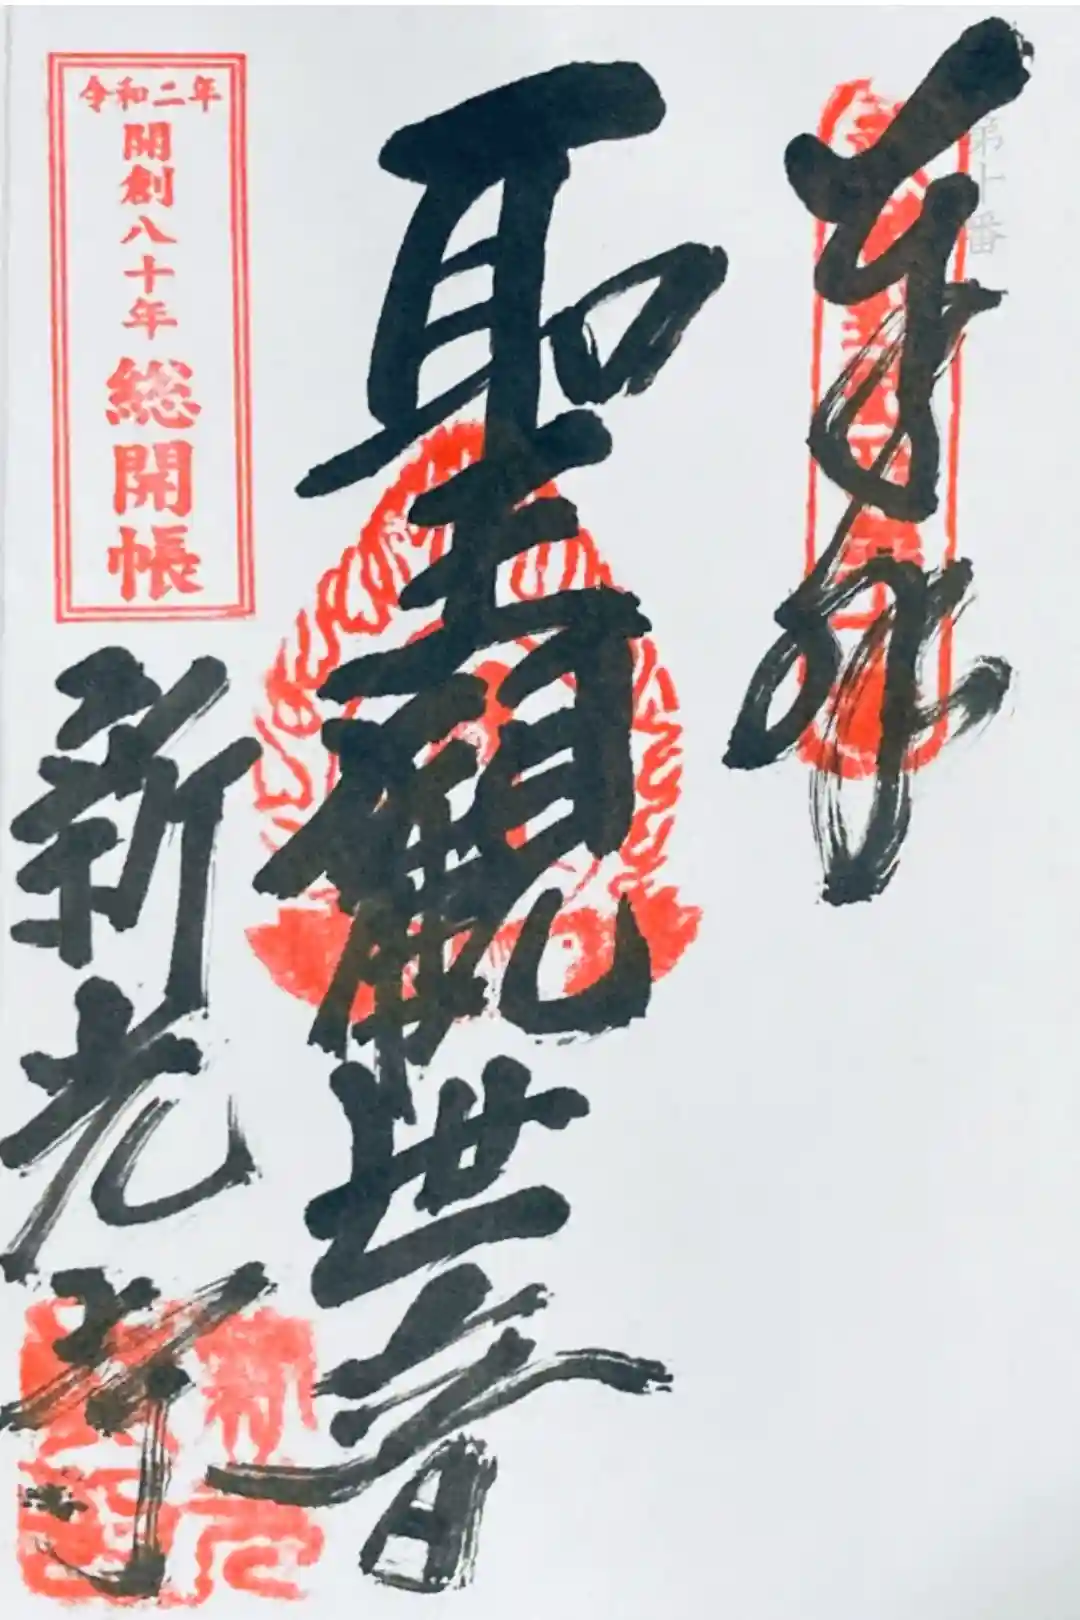 第十番
奉拝
聖観世音
令和二年
開創八十年
総開帳
新光寺